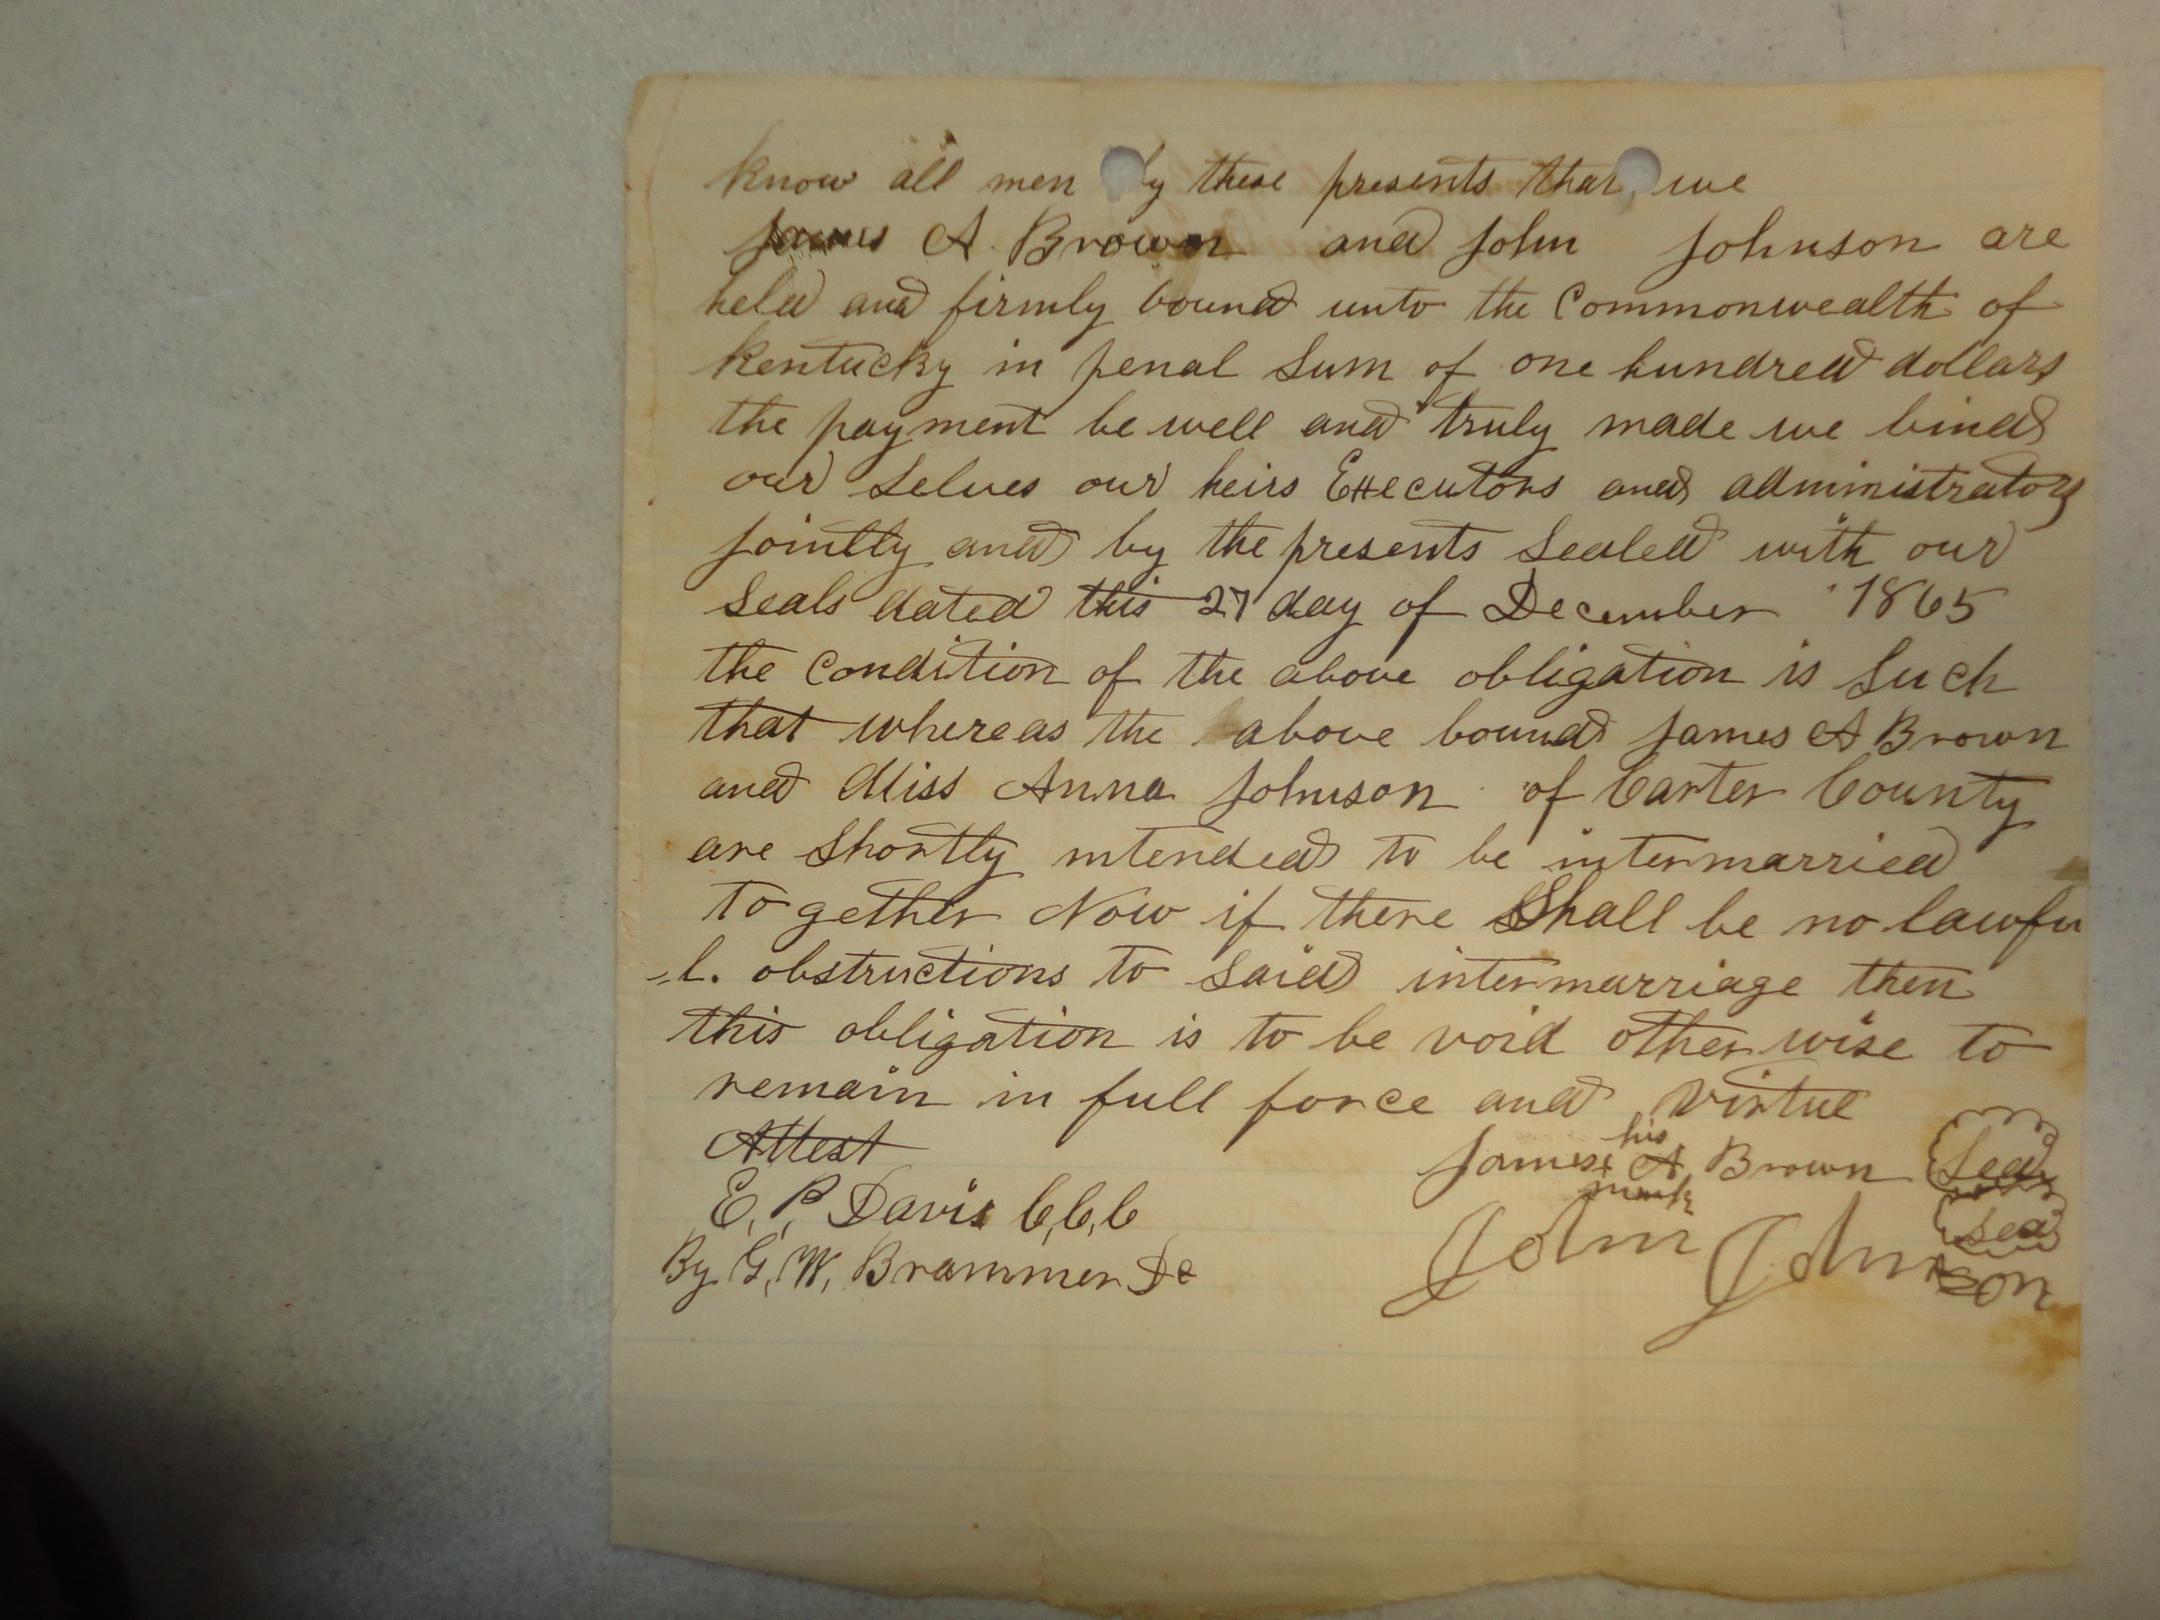 know all men by these presents that we
James A. Brown and John Johnson are
held and firmly bound unto the Commonwealth of
Kentucky in penal Sum of one hundred dollars
the payment be well and truly made we bind
our Selves our heirs Executors and administrators
jointly and by the presents Sealed with our
Seals dated this 27 day of December 1865
the Condition of the above obligation is Such
that whereas the above bound James A Brown
and Miss Anna Johnson of Carter County
are Shortly intended to be intermarried
together Now if there Shall be no lawfu
-l. obstructions to Said intermarriage then
this obligation is to be void other wise to
remain in full force and Virtue
Attest
his
James x A Brown Seal
mark
E. P. Davis C,C,C
Seal
John Johnson
By G, W, Brammer Dc